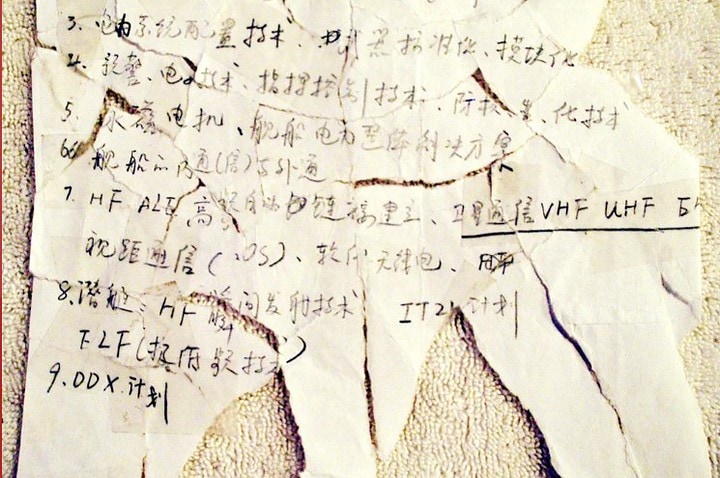 3. 电力系统配置技术、武器标准化、模块化
4. 预警、电子技术、指挥控制技术、防核、生、化技术
5. 永磁电机、舰船电力整体解决方案
6. 舰船之内通(信)与外通
7. HF ALE 高频自动链接建立、卫星通信 VHF UHF
视距通信(LOS)、软件无线电、
8. 潜艇 HF 瞬间发射技术 IT21计划
ELF(极低频技术)
9. DDX.计划